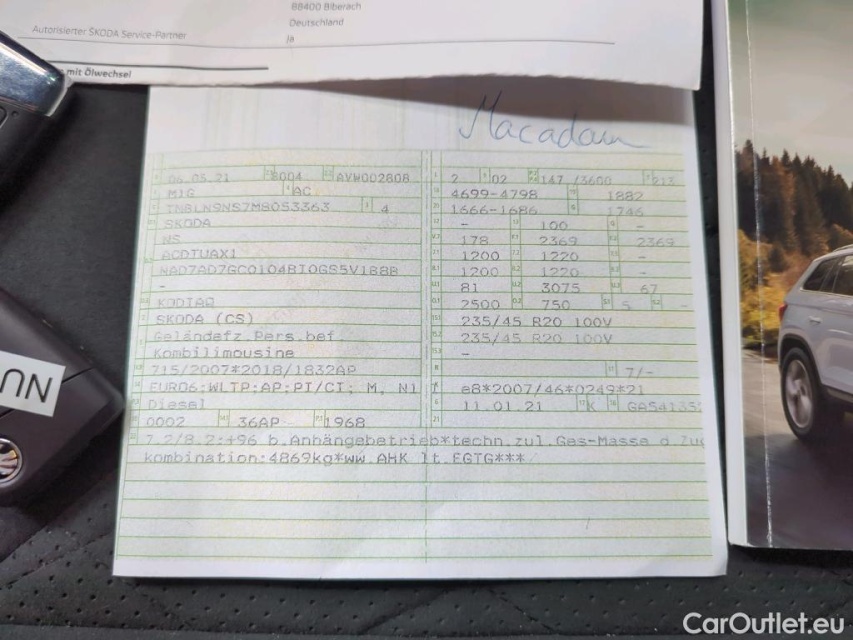 88400 Biberach
Autorisierter ŠKODA Service-Partner
Deutschland
ja
mit Ölwechsel
Macadam
06.03.21 8004 AVW002808
M1G AC
TMBLN9NS7M8053363 4
SKODA
NS
ACDTUAX1
NAD7AD7GCO104BIOGS5V188B
-
KODIAQ
SKODA (CS)
Geländefz.Pers.bef.
Kombilimousine
715/2007*2018/1832AP
EURO6;WLTP;AP;PI/CI; M, N1
Diesel
0002 36AP 1968
2 02 147 /3600 213
4699-4798 1882
1666-1686 1746
- 100 -
178 2369 2369
1200 1220 -
1200 1220 -
81 3075 67
2500 750 5 -
235/45 R20 100V
235/45 R20 100V
-
7/-
e8*2007/46*0249*21
11.01.21 K GA54133
7.2/8.2:+96 b.Anhängebetrieb*techn.zul.Ges-Masse d.Zug
kombination:4869kg*ww.AHK lt.EGTG***
NU
CarOutlet.eu